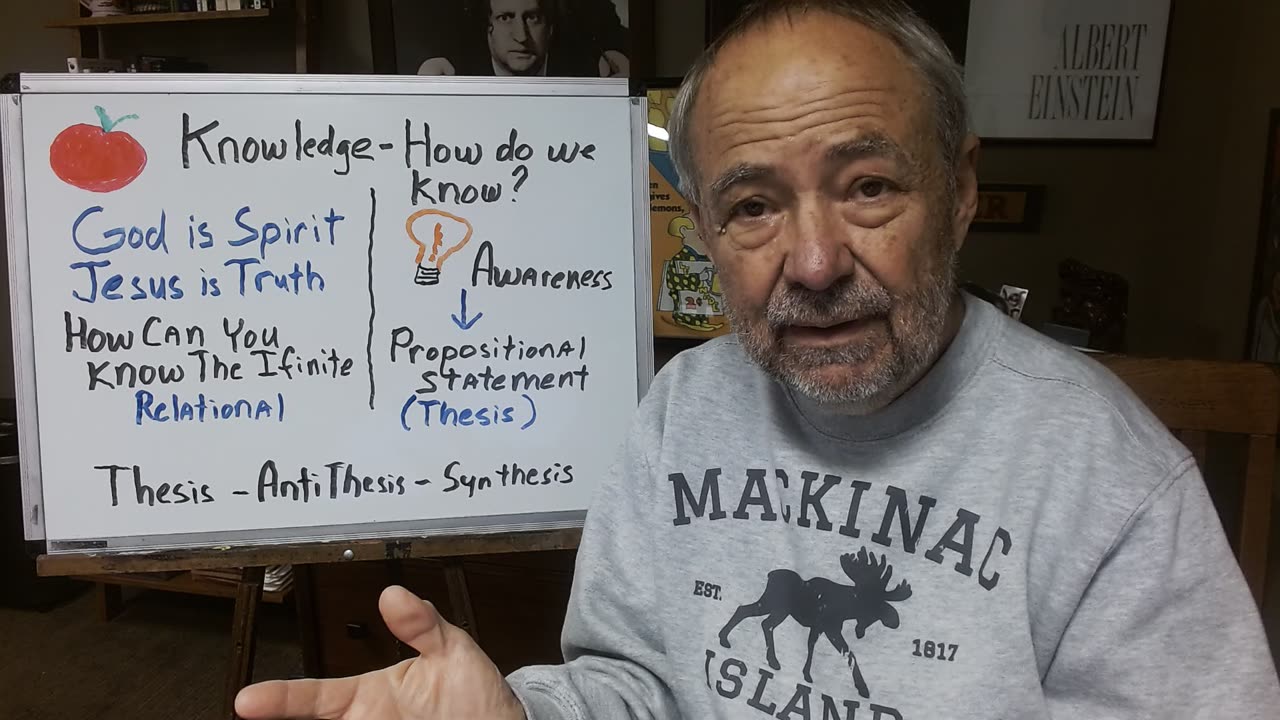 ALBERT
EINSTEIN
Knowledge - How do we
know?
God is Spirit
Jesus is Truth
How Can You
Know The Ifinite
Relational
Awareness
Propositional
Statement
(Thesis)
Thesis - AntiThesis - Synthesis
gives
lemons,
MACKINAC
EST.
1817
ISLAND